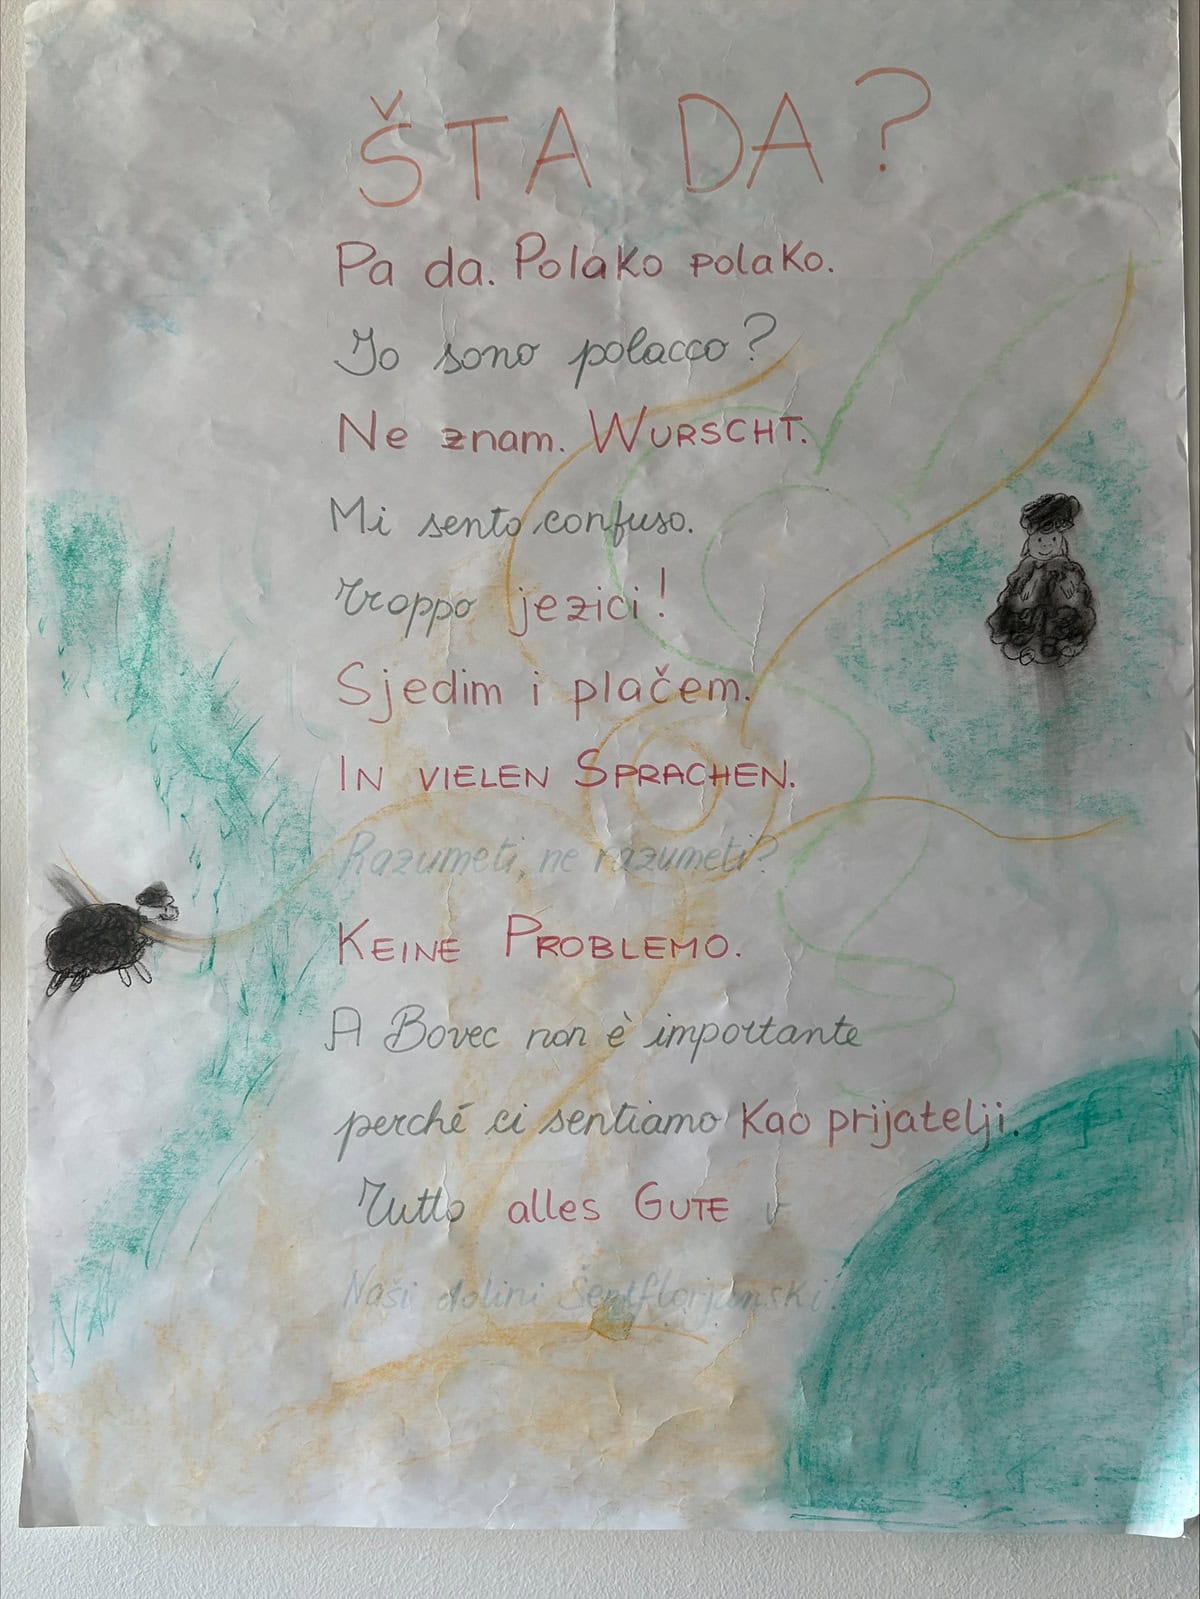 ŠTA DA?
Pa da. Polako polako.
Io sono polacco?
Ne znam. WURSCHT.
Mi sento confuso.
Troppo jezici!
Sjedim i plačem.
IN VIELEN SPRACHEN.
Razumeti, ne razumeti?
KEINE PROBLEMO.
A Bovec non è importante
perché ci sentiamo kao prijatelji.
Tutto alles GUTE v
Naši dolini Šentflorjanski.